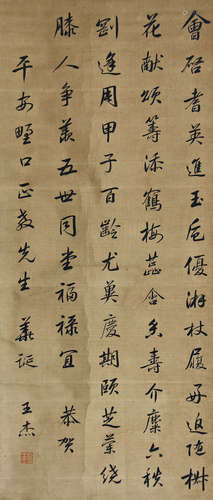 會啓耆英進玉卮優游杖履好追陪椒
花献頌籌添鶴梅蕊含香壽介麋六秩
剛逢周甲子百齡尤奠慶期頤芝蘭繞
膝人争羡五世同堂福禄宜 恭賀
平安野口正教先生 華誕 王杰